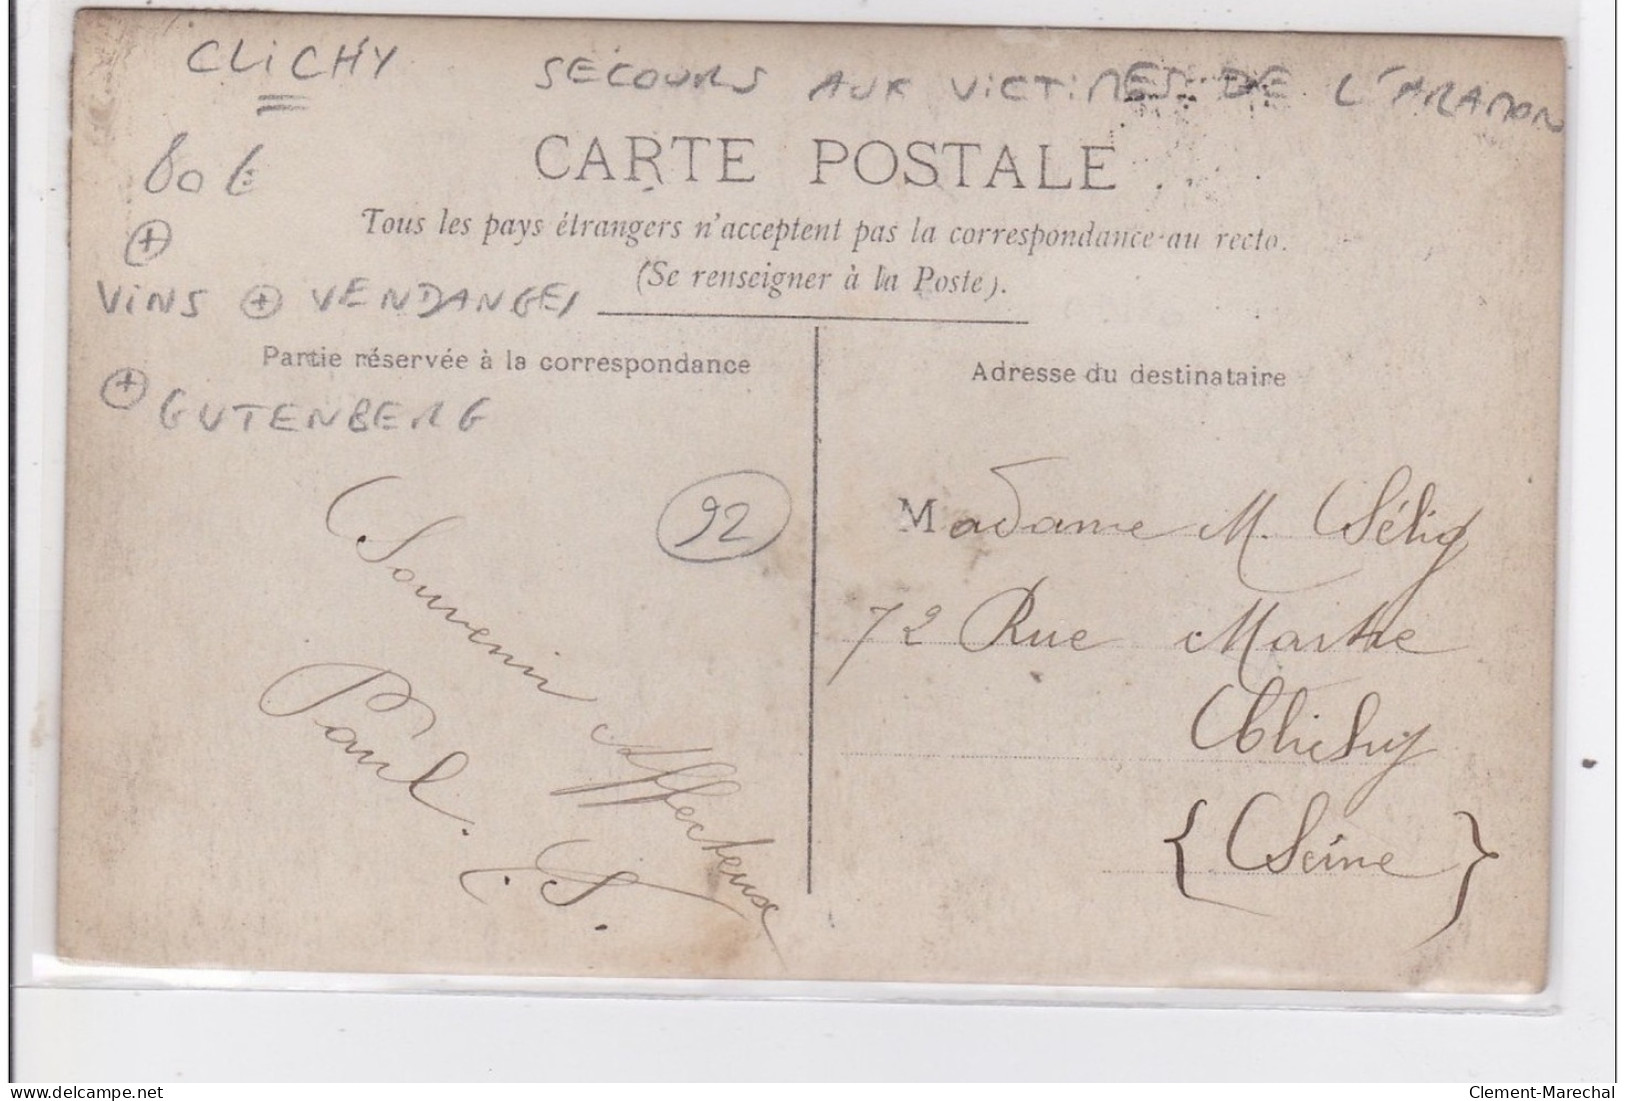 CLICHY
SECOURS AUX VICTIMES DE L'ARAMON
80 €
CARTE POSTALE
Tous les pays étrangers n'acceptent pas la correspondance au recto.
(Se renseigner à la Poste).
VINS + VENDANGES
Partie réservée à la correspondance
Adresse du destinataire
+ GUTENBERG
92
Souvenir Affectueux
Paul. S.
Madame M. Sélig
72 Rue Martre
Clichy
{Seine}
delcampe.net
Clement-Marechal